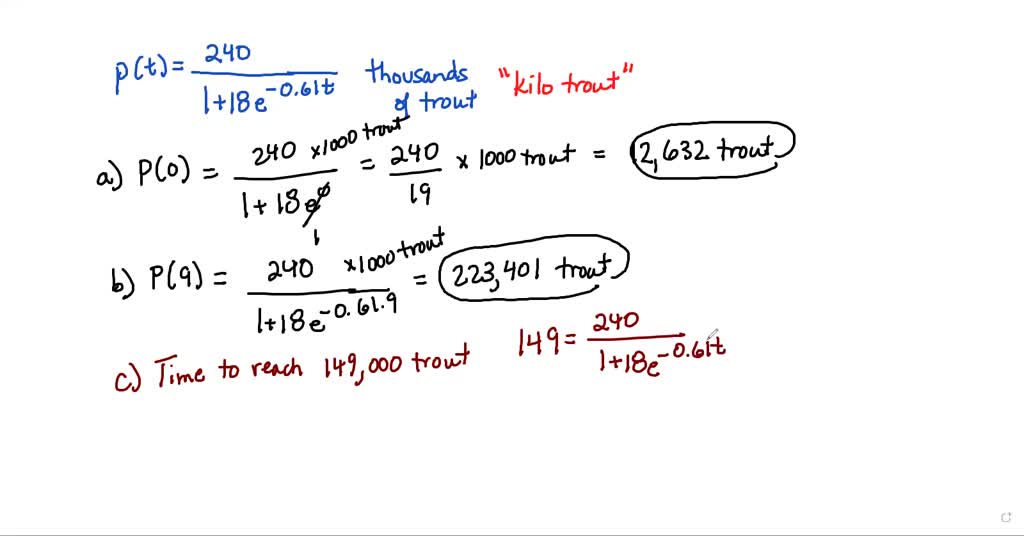 P(t) = 240 / (1+18e^-0.61t) thousands of trout "kilo trout"
a) P(0) = 240 ×1000 trout / (1+18e^0) = 240/19 × 1000 trout = 12,632 trout
1
b) P(9) = 240 ×1000 trout / (1+18e^-0.61·9) = 223,401 trout
c) Time to reach 149,000 trout 149 = 240 / (1+18e^-0.61t)